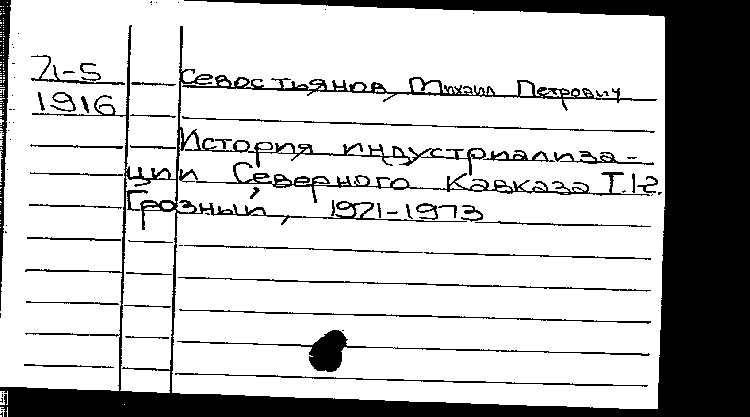 71-5
1916
Севостьянов, Михаил Петрович
История индустриализа-
ции Северного Кавказа Т.1-2.
Грозный, 1971-1973